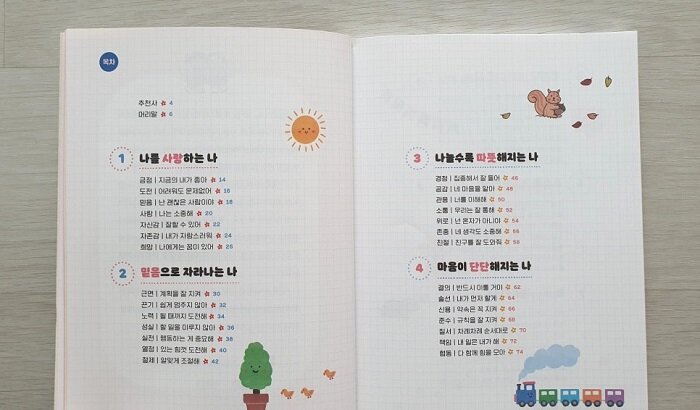 목차
추천사 4
머리말 6
1 나를 사랑하는 나
긍정 | 지금의 내가 좋아 14
도전 | 어려워도 문제없어 16
믿음 | 난 괜찮은 사람이야 18
사랑 | 나는 소중해 20
자신감 | 잘할 수 있어 22
자존감 | 내가 자랑스러워 24
희망 | 나에게는 꿈이 있어 26
2 믿음으로 자라나는 나
근면 | 계획을 잘 지켜 30
끈기 | 쉽게 멈추지 않아 32
노력 | 될 때까지 도전해 34
성실 | 할 일을 미루지 않아 36
실천 | 행동하는 게 중요해 38
열정 | 있는 힘껏 도전해 40
절제 | 알맞게 조절해 42
3 나눌수록 따뜻해지는 나
경청 | 집중해서 잘 들어 46
공감 | 네 마음을 알아 48
관용 | 너를 이해해 50
소통 | 우리는 잘 통해 52
위로 | 넌 혼자가 아니야 54
존중 | 네 생각도 소중해 56
친절 | 친구를 잘 도와줘 58
4 마음이 단단해지는 나
결의 | 반드시 이룰 거야 62
솔선 | 내가 먼저 할게 64
신용 | 약속은 꼭 지켜 66
준수 | 규칙을 잘 지켜 68
질서 | 차례차례 순서대로 70
책임 | 내 일은 내가 해 72
협동 | 다 함께 힘을 모아 74